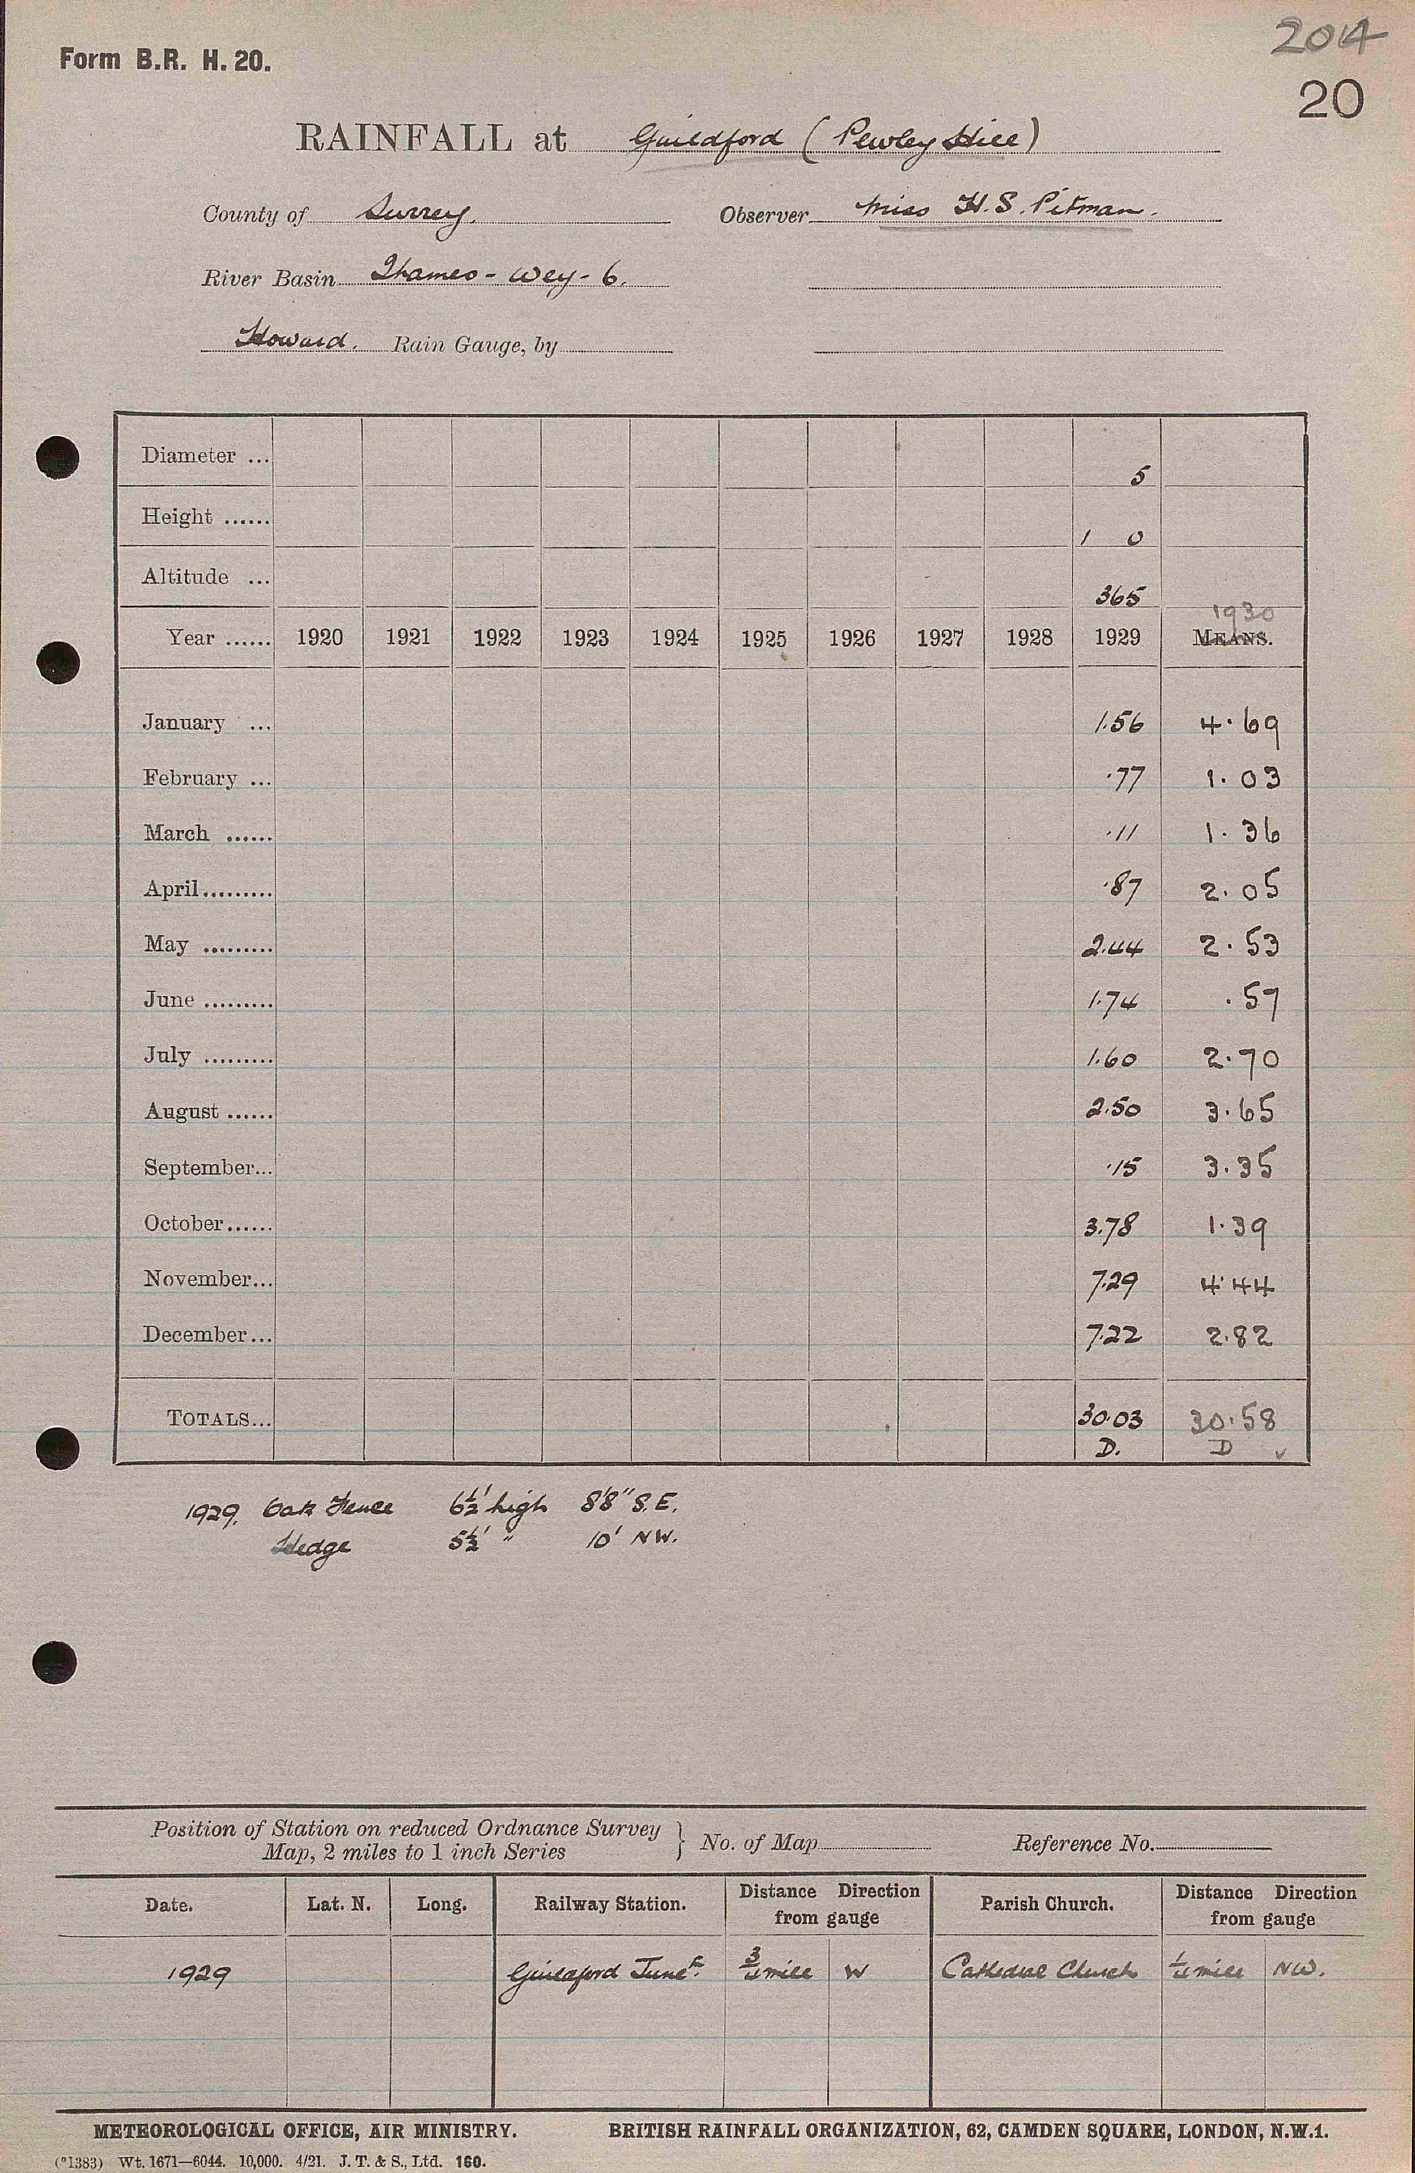 Form B.R. H. 20.
204
20
RAINFALL at Guildford (Pewley Hill)
County of Surrey. Observer Miss H. S. Pitman.
River Basin Thames - Wey - 6.
Howard. Rain Gauge, by
Diameter ... 5
Height ...... 1 0
Altitude ... 365
1930
Year ...... 1920 1921 1922 1923 1924 1925 1926 1927 1928 1929 MEANS.
January ... 1.56 4.69
February ... .77 1.03
March ...... .11 1.36
April ......... .87 2.05
May ......... 2.44 2.53
June ......... 1.74 .57
July ......... 1.60 2.70
August ...... 2.50 3.65
September... .15 3.35
October...... 3.78 1.39
November... 7.29 4.44
December... 7.22 2.82
TOTALS... 30.03 30.58
D. D ✓
1929. Oak Fence 6½' high 8'8" S.E.
Hedge 5½' " 10' NW.
Position of Station on reduced Ordnance Survey
Map, 2 miles to 1 inch Series } No. of Map Reference No.
Date. Lat. N. Long. Railway Station. Distance Direction from gauge Parish Church. Distance Direction from gauge
1929 Guildford Junct. ¾ mile W Cathedral Church ¼ mile NW.
METEOROLOGICAL OFFICE, AIR MINISTRY. BRITISH RAINFALL ORGANIZATION, 62, CAMDEN SQUARE, LONDON, N.W.1.
(*1383) Wt. 1671—6044. 10,000. 4/21. J. T. & S., Ltd. 160.